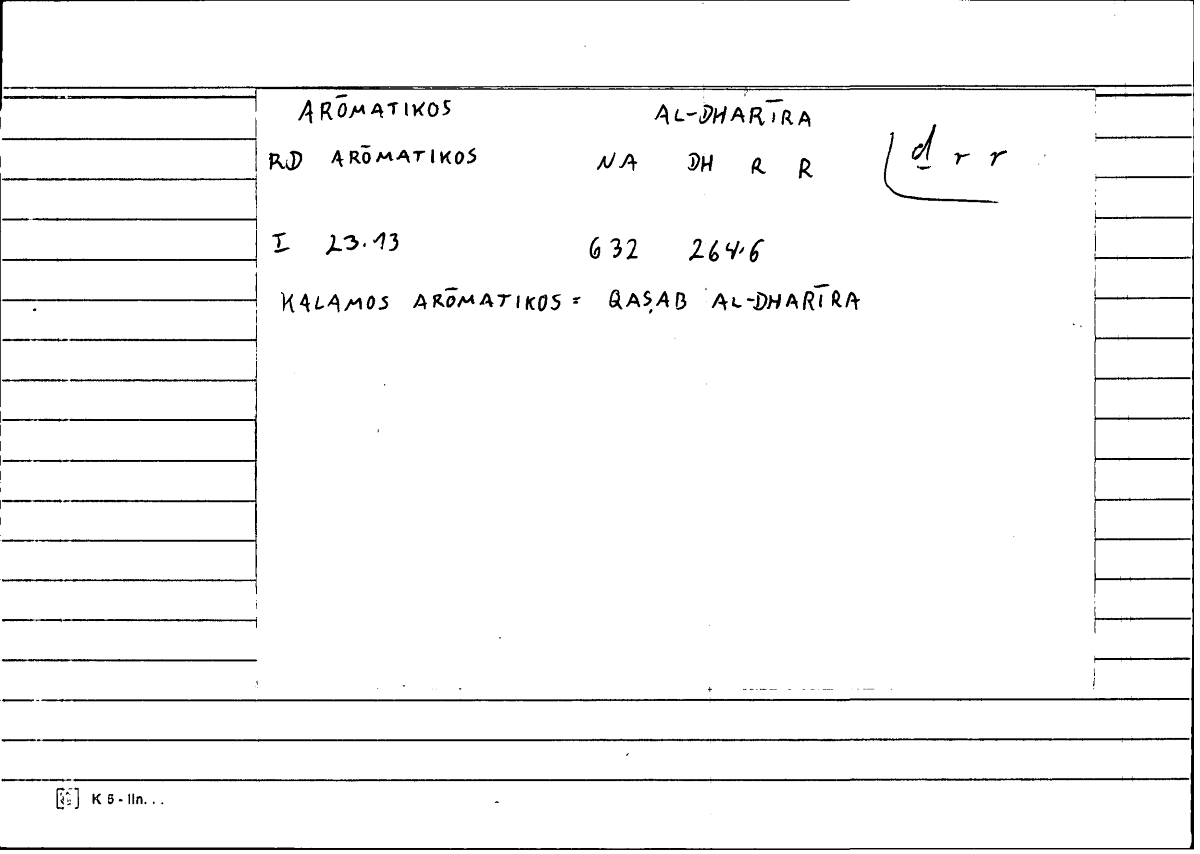 ARŌMATIKOS AL-DHARĪRA
RD ARŌMATIKOS NA DH R R ḏ r r
I 23.13 632 264.6
KALAMOS ARŌMATIKOS = QAṢAB AL-DHARĪRA
K 5 - lln...